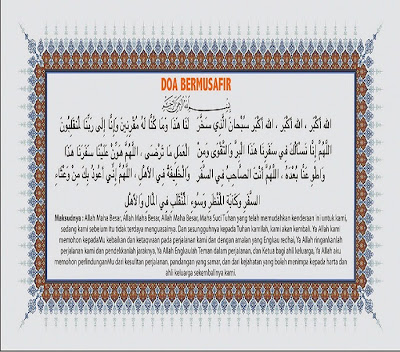 DOA BERMUSAFIR
بِسْمِ اللَّهِ الرَّحْمَنِ الرَّحِيمِ
اللهُ أَكْبَر ، اللهُ أَكْبَر ، اللهُ أَكْبَر سُبْحَانَ الَّذِي سَخَّرَ لَنَا هَذَا وَمَا كُنَّا لَهُ مُقْرِنِينَ وَإِنَّا إِلَى رَبِّنَا لَمُنْقَلِبُونَ
اللَّهُمَّ إِنَّا نَسْأَلُكَ فِي سَفَرِنَا هَذَا الْبِرَّ وَالتَّقْوَى وَمِنَ الْعَمَلِ مَا تَرْضَى ، اللَّهُمَّ هَوِّنْ عَلَيْنَا سَفَرَنَا هَذَا
وَاطْوِ عَنَّا بُعْدَهُ ، اللَّهُمَّ أَنْتَ الصَّاحِبُ فِي السَّفَرِ وَالْخَلِيفَةُ فِي الْأَهْلِ ، اللَّهُمَّ إِنِّي أَعُوذُ بِكَ مِنْ وَعْثَاءِ
السَّفَرِ وَكَآبَةِ الْمَنْظَرِ وَسُوءِ الْمُنْقَلَبِ فِي الْمَالِ وَالْأَهْلِ
Maksudnya : Allah Maha Besar, Allah Maha Besar, Allah Maha Besar, Maha Suci Tuhan yang telah memudahkan kenderaan ini untuk kami,
sedang kami sebelum itu tidak terdaya menguasainya. Dan sesungguhnya kepada Tuhan kamilah, kami akan kembali. Ya Allah kami
memohon kepadaMu kebaikan dan ketaqwaan pada perjalanan kami dan dengan amalan yang Engkau redhai, Ya Allah Ringankanlah
perjalanan kami dan pendekkanlah jaraknya. Ya Allah Engkaulah Teman dalam perjalanan, dan Ketua bagi ahli keluarga, Ya Allah aku
memohon perlindunganMu dari kesulitan perjalanan, pandangan yang samar, dan dari kejahatan yang boleh menimpa kepada harta dan
ahli keluarga sekembalinya kami.